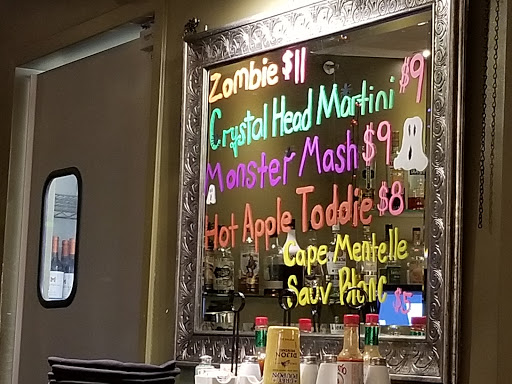 Zombie $11
Crystal Head Martini $9
Monster Mash $9
Hot Apple Toddie $8
Cape Mentelle
Sauv Blanc $5